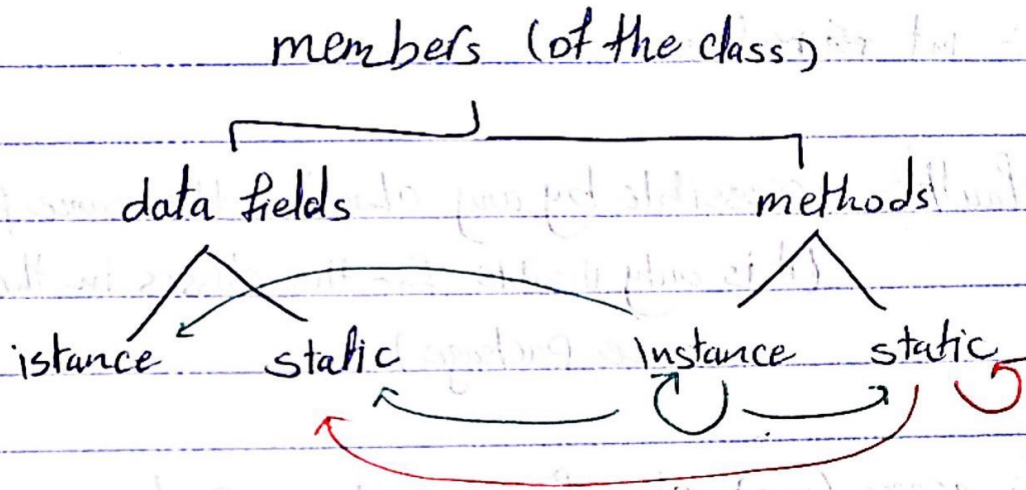 members (of the class)
data fields methods
istance static Instance static